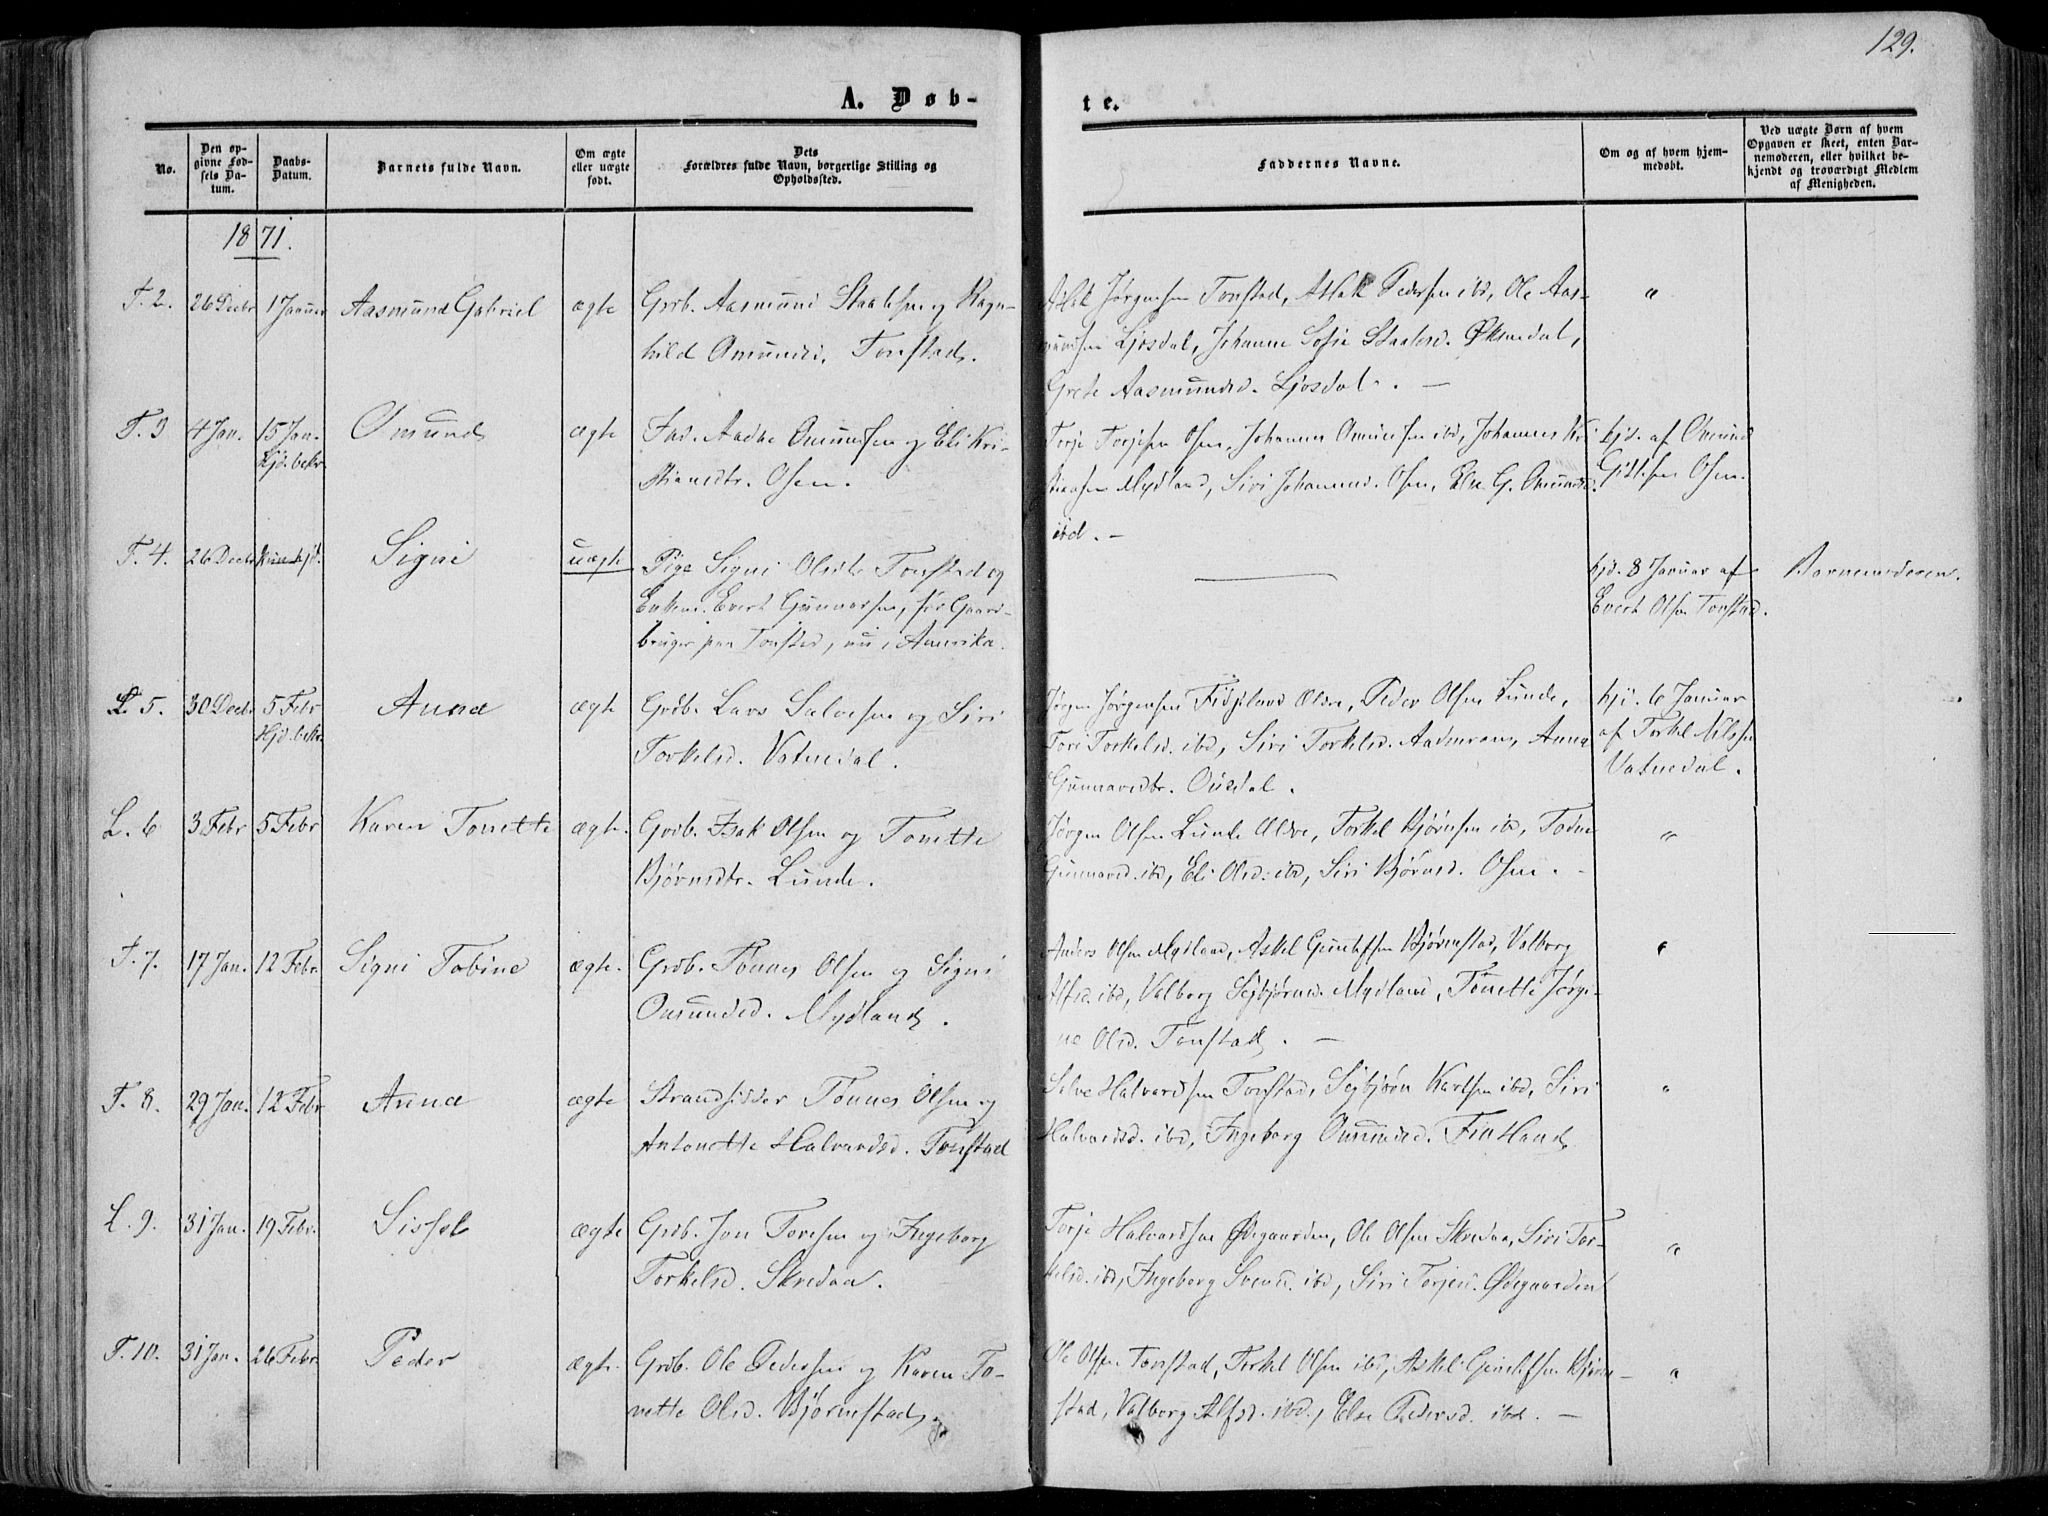 129.
A. Døb-
te.
No.
Den op-
givne Fød-
sels Da-
tum.
Daabs-
Datum.
Barnets fulde Navn.
Om ægte
eller uægte
født.
Dets
Forældres fulde Navn, borgerlige Stilling og
Opholdssted.
Faddernes Navne.
Om og af hvem hjem-
medøbt.
Ved uægte Børn af hvem
Opgaven er skeet, enten Bar-
nemoderen, eller hvilket be-
kjendt og troværdigt Medlem
af Menigheden.
1871.
T. 2. 26 Decbr 1 Januar Aasmund Gabriel ægte Grdb. Aasmund Staalesen og Ragn-
hild Omundsd. Tonstad.
Aslak Jørgensen Tonstad, Aslak Pedersen ibd, Ole Aas-
mundsen Ljosdal, Johanne Sofie Staalesd. Øksendal,
Grete Aasmundsd. Ljosdal. —
"
T. 3 4 Jan. 15 Jan. Omund ægte Ind. Aadne Omundsen og Eli Kri-
Hjd. bekr.
stiansdtr. Osen.
Torje Torjesen Osen, Johannes Omundsen ibd, Johannes Kri
stiansen Mydland, Siri Johannesd. Osen, Else G. Omundsd.
ibd. —
hjd. af Omund
Gittesen Osen.
T. 4. 26 Decbr Kun hjd. Signi uægte Pige Signi Olsdtr Tonstad og
Enkem. Evert Gunnarsen, før Gaard-
bruger paa Tonstad, nu i Amerika.
—
hjd. 8 Januar af
Evert Olsen Tonstad.
Barnemoderen.
L. 5. 30 Decbr 5 Febr Anna ægte Grdb. Lars Salvesen og Siri
Hjd. bekr.
Torkelsd. Vatnedal.
Jørgen Jørgensen Fidjeland Ældre, Peder Olsen Lunde,
Tori Torkelsd. ibd, Siri Torkelsd. Aadneram, Anna
Gunnarsdtr. Ousdal.
hjd. 6 Januar
af Torkel Nilsen
Vatnedal.
L. 6 3 Febr 5 Febr Karen Tonette ægte. Grdb. Isak Olsen og Tonette
Bjørnsdtr. Lunde.
Jørgen Olsen Lunde Ældre, Torkel Bjørnsen ibd, Tone
Gunnarsd. ibd, Eli Olsd. ibd, Siri Bjørnsd. Osen. -
"
T. 7. 17 Jan. 12 Febr. Signi Tobine ægte. Grdb. Tønnes Olsen og Signi
Omundsd. Mydland.
Anders Olsen Mydland, Askel Gundersen Bjørnestad, Valborg
Alfsd. ibd, Valborg Sejbjørnsd. Mydland, Tonette Jørgi-
ne Olsd. Tonstad. —
"
T. 8. 29 Jan. 12 Febr Anna ægte Strandsidder Tønnes Olsen og
Antonette Halvardsd. Tonstad
Salve Halvardsen Tonstad, Sejbjørn Karlsen ibd, Siri
Halvardsd. ibd, Ingeborg Omundsd. Fintland.
"
L. 9. 31 Jan. 19 Febr. Sissel ægte Grdb. Jon Toresen og Ingeborg
Torkelsd. Skredaa.
Torje Halvardsen Ødegaarden, Ole Olsen Skredaa, Siri Tor-
kelsd. ibd, Ingeborg Svensd. ibd, Siri Torjesd. Ødegaarden
"
T. 10. 31 Jan. 26 Febr. Peder ægte. Grdb. Ole Pedersen og Karen To-
nette Olsd. Bjørnestad.
Ole Olsen Tonstad, Torkel Olsen ibd, Askel Gundersen Bjørne-
stad, Valborg Alfsd. ibd., Else Pedersd. ibd. —
"